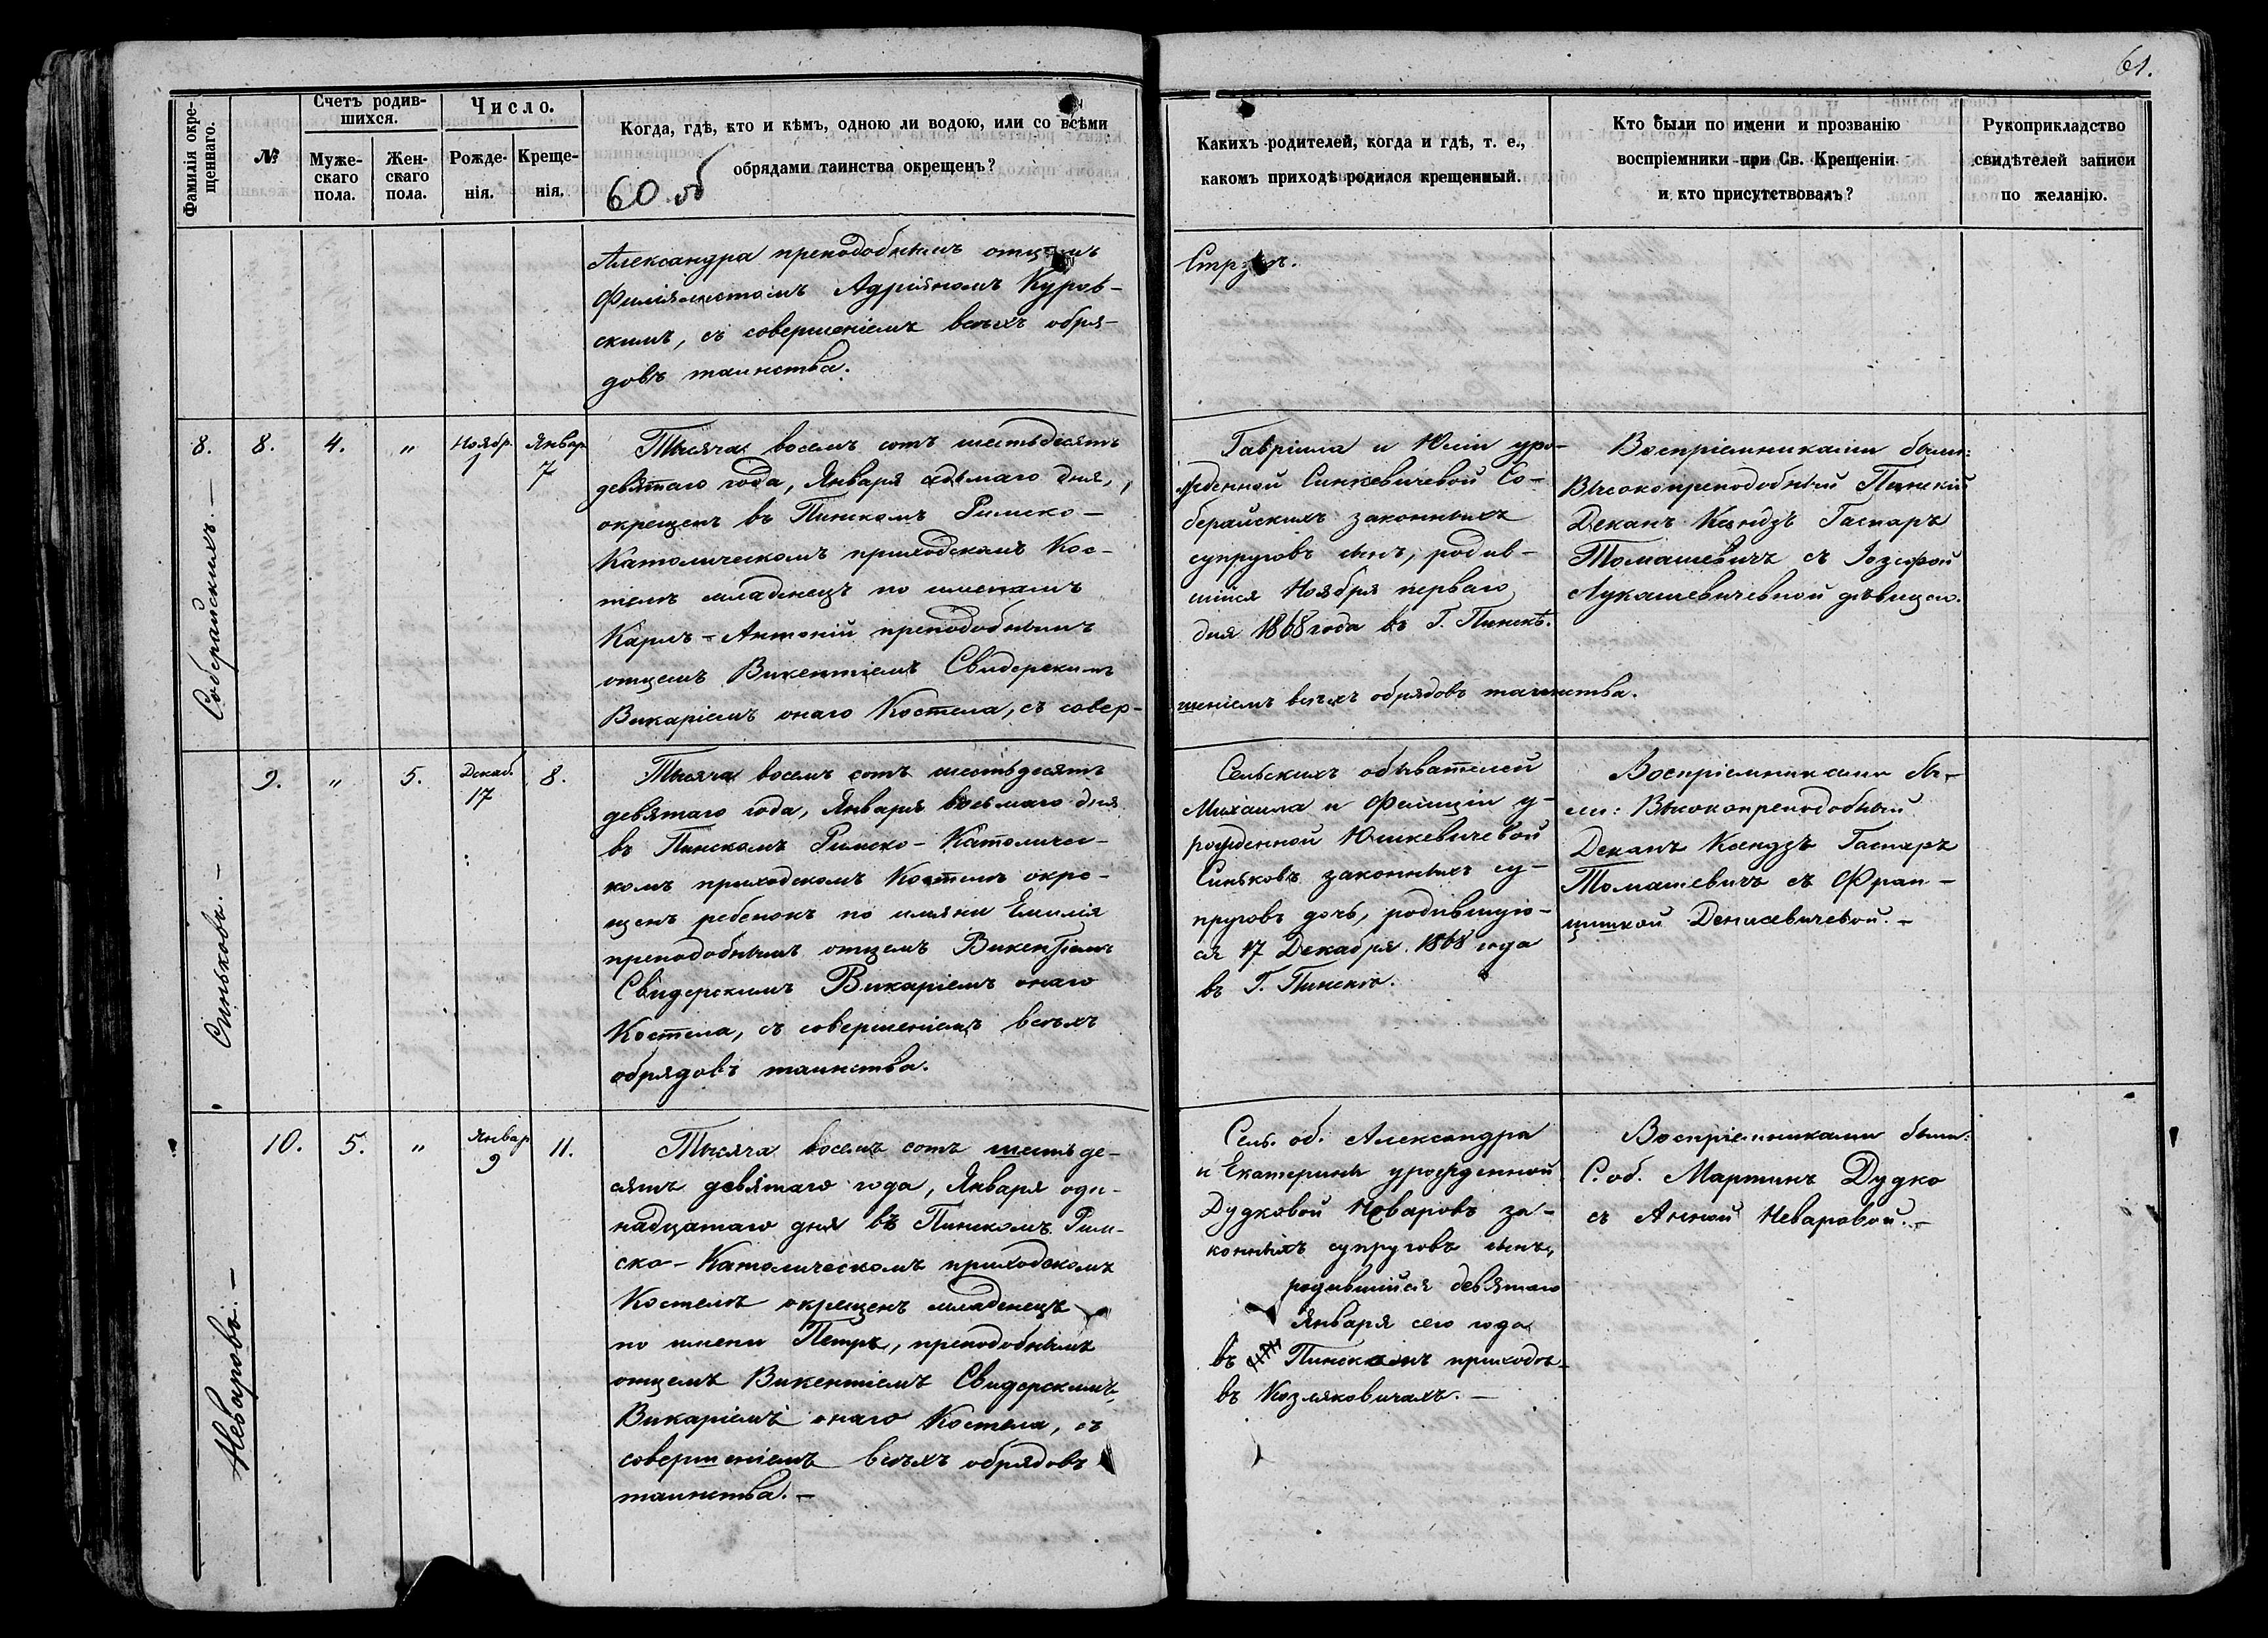 61.
Фамилія окре-
щеннаго.
№
Счетъ родив-
шихся.
Муже-
скаго
пола.
Жен-
скаго
пола.
Число.
Рожде-
нія.
Креще-
нія.
Когда, гдѣ, кто и кѣмъ, одною ли водою, или со всѣми
обрядами таинства окрещенъ?
60 об
Какихъ родителей, когда и гдѣ, т. е.,
какомъ приходѣ родился крещенный.
Кто были по имени и прозванію
воспріемники при Св. Крещеніи
и кто присутствовалъ?
Рукоприкладство
свидѣтелей записи
по желанію.
Александра преподобнымъ отцемъ
Адріяномъ Куров-
скимъ, съ совершеніемъ всѣхъ обря-
довъ таинства.
8.
Соберайскихъ.—
8.
4.
"
Ноябр.
1
Январ
7
Тысяча восемь сотъ шестьдесятъ
девятаго года, Января седьмаго дня,
окрещенъ въ Пинскомъ Римско-
Католическомъ приходскомъ Кос-
телѣ младенецъ по именамъ
Карлъ-Антоній преподобнымъ
отцемъ Викентіемъ Свидерскимъ
Викаріемъ онаго Костела, съ совер-
шеніемъ всѣхъ обрядовъ таинства.
Гавріила и Юліи уро-
жденной Синкевичевой Со-
берайскихъ законныхъ
супруговъ сынъ, родив-
шійся Ноября перваго
дня 1868 года въ Г. Пинскѣ.
Воспріемниками были:
Высокопреподобный Пинскій
Деканъ Ксендзъ Гаспаръ
Томашевичъ съ Іозефой
Лукашевичевной дѣвицею.
Синьковъ.—
9.
"
5.
Декаб.
17
8.
Тысяча восемь сотъ шестьдесятъ
девятаго года, Января восьмаго дня
въ Пинскомъ Римско-Католичес-
комъ приходскомъ Костелѣ окре-
щенъ ребенокъ по имяни Емилія
преподобнымъ отцемъ Викентіемъ
Свидерскимъ Викаріемъ онаго
Костела, съ совершеніемъ всѣхъ
обрядовъ таинства.
Сельскихъ обывателей
Михаила и Фелиціи у-
рожденной Юшкевичевой
Синьковъ законныхъ су-
пруговъ дочь, родившую-
ся 17 Декабря 1868 года
въ Г. Пинскѣ.
Воспріемниками бы-
ли: Высокопреподобный
Деканъ Ксендзъ Гаспаръ
Томашевичъ съ Фран-
цишкой Денисевичевой.—
Неваровъ.—
10.
5.
"
Январ
9
11.
Тысяча восемь сотъ шестьде-
сятъ девятаго года, Января оди-
надцатаго дня въ Пинскомъ Рим-
ско-Католическомъ приходскомъ
Костелѣ окрещенъ младенецъ
по имени Петръ, преподобнымъ
отцемъ Викентіемъ Свидерскимъ
Викаріемъ онаго Костела, съ
совершеніемъ всѣхъ обрядовъ
таинства.—
Сель. об. Александра
и Екатерины урожденной
Дудковой Неваровъ за-
конныхъ супруговъ сынъ,
родившійся девятаго
Января сего года
въ Пинскомъ приходѣ
въ Козляковичахъ.—
Воспріемниками были:
С. об. Мартинъ Дудко
съ Анной Неваровой.—